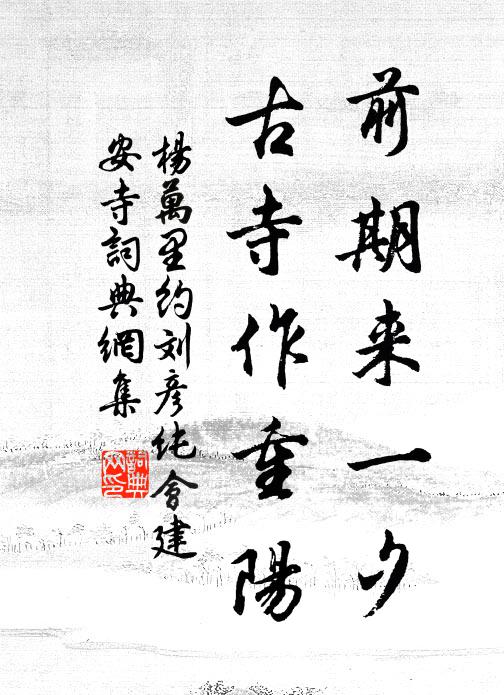 前期来一夕
古寺作重陽
楊萬里約刘彦纯會建
安寺詞典網集
詞典网印